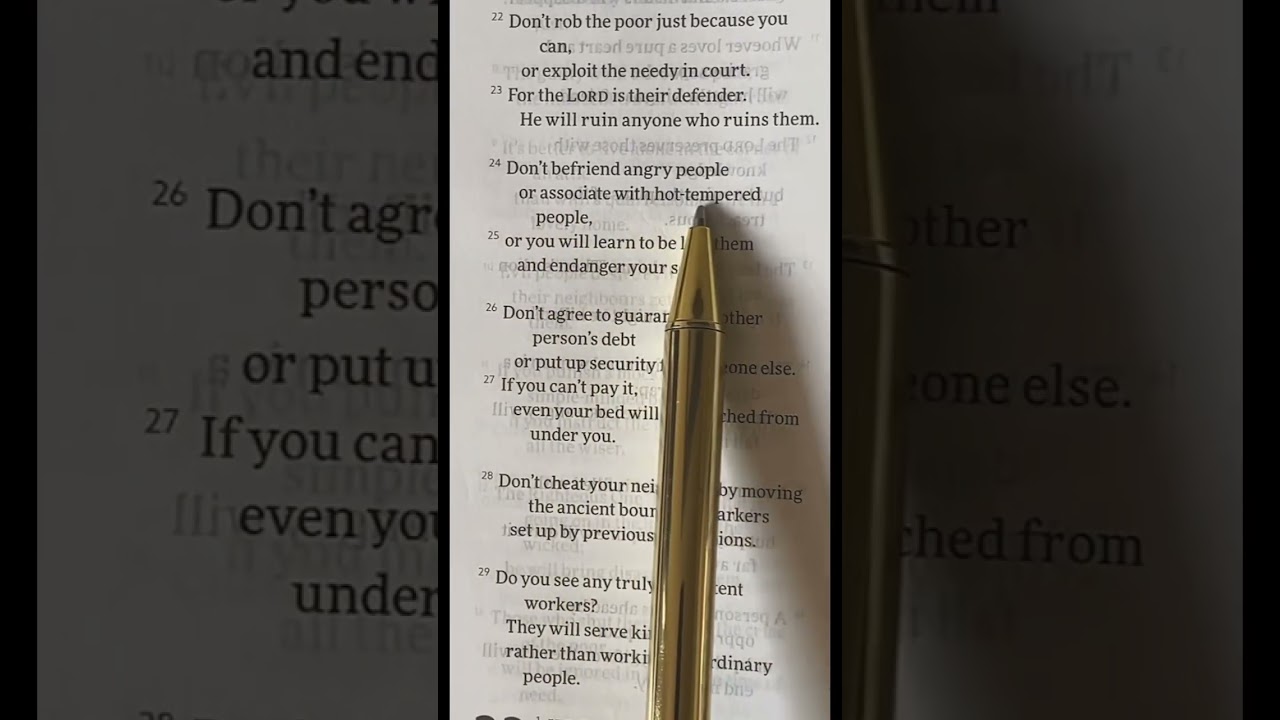 22 Don't rob the poor just because you
can,
or exploit the needy in court.
23 For the LORD is their defender.
He will ruin anyone who ruins them.
24 Don't befriend angry people
or associate with hot-tempered
people,
25 or you will learn to be them
and endanger your
26 Don't agree to
person's debt
or put up security else.
27 If you can't pay it,
even your bed will from
under you.
28 Don't cheat your by moving
the ancient
set up by previous
29 Do you see any truly
workers?
They will serve
rather than
people.